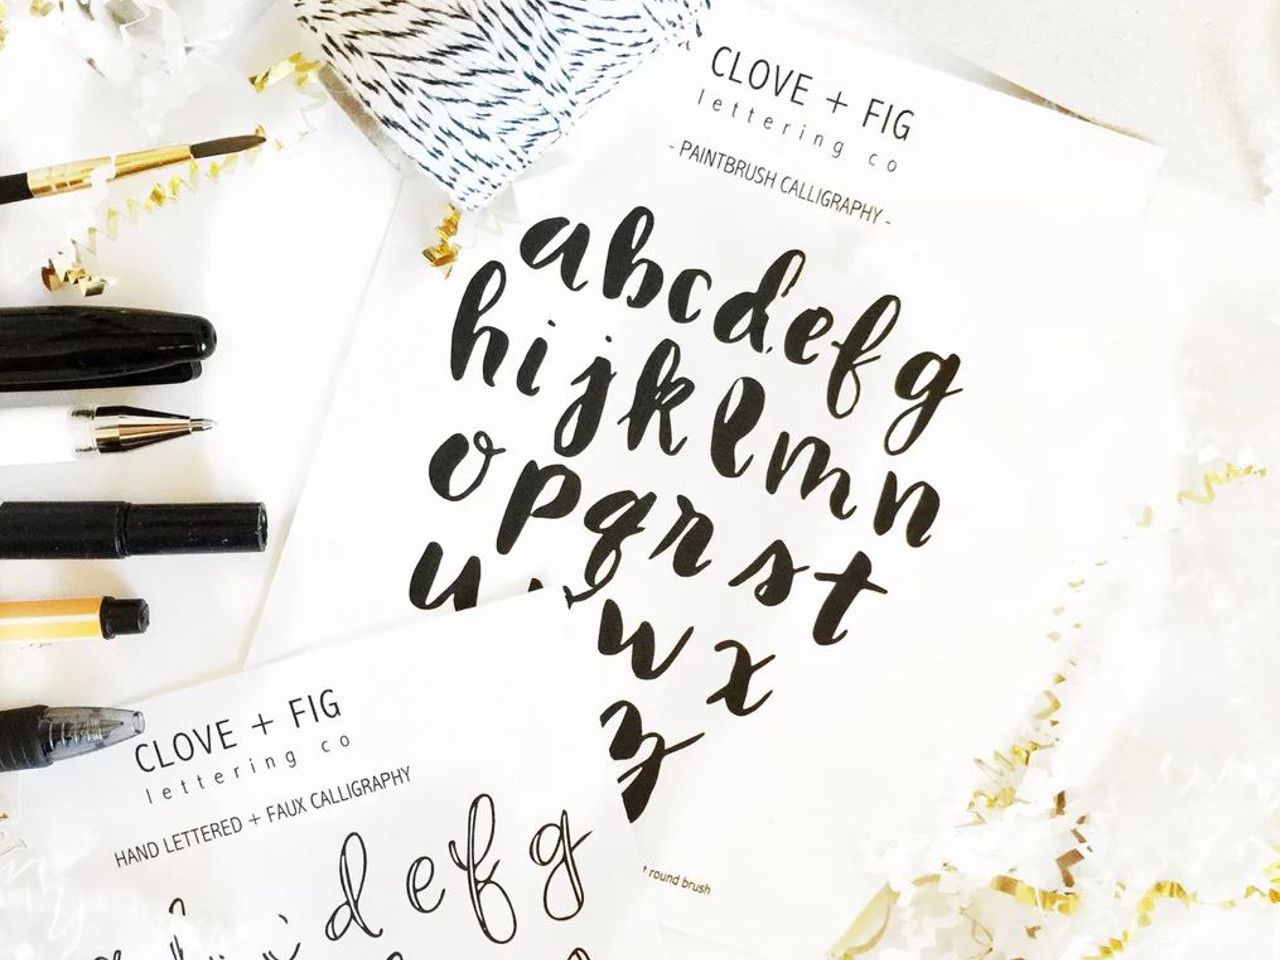 CLOVE + FIG
lettering co
- PAINTBRUSH CALLIGRAPHY -
abcdefg
hijklmn
opqrst
u wx
z
round brush
CLOVE + FIG
lettering co
HAND LETTERED + FAUX CALLIGRAPHY
defg